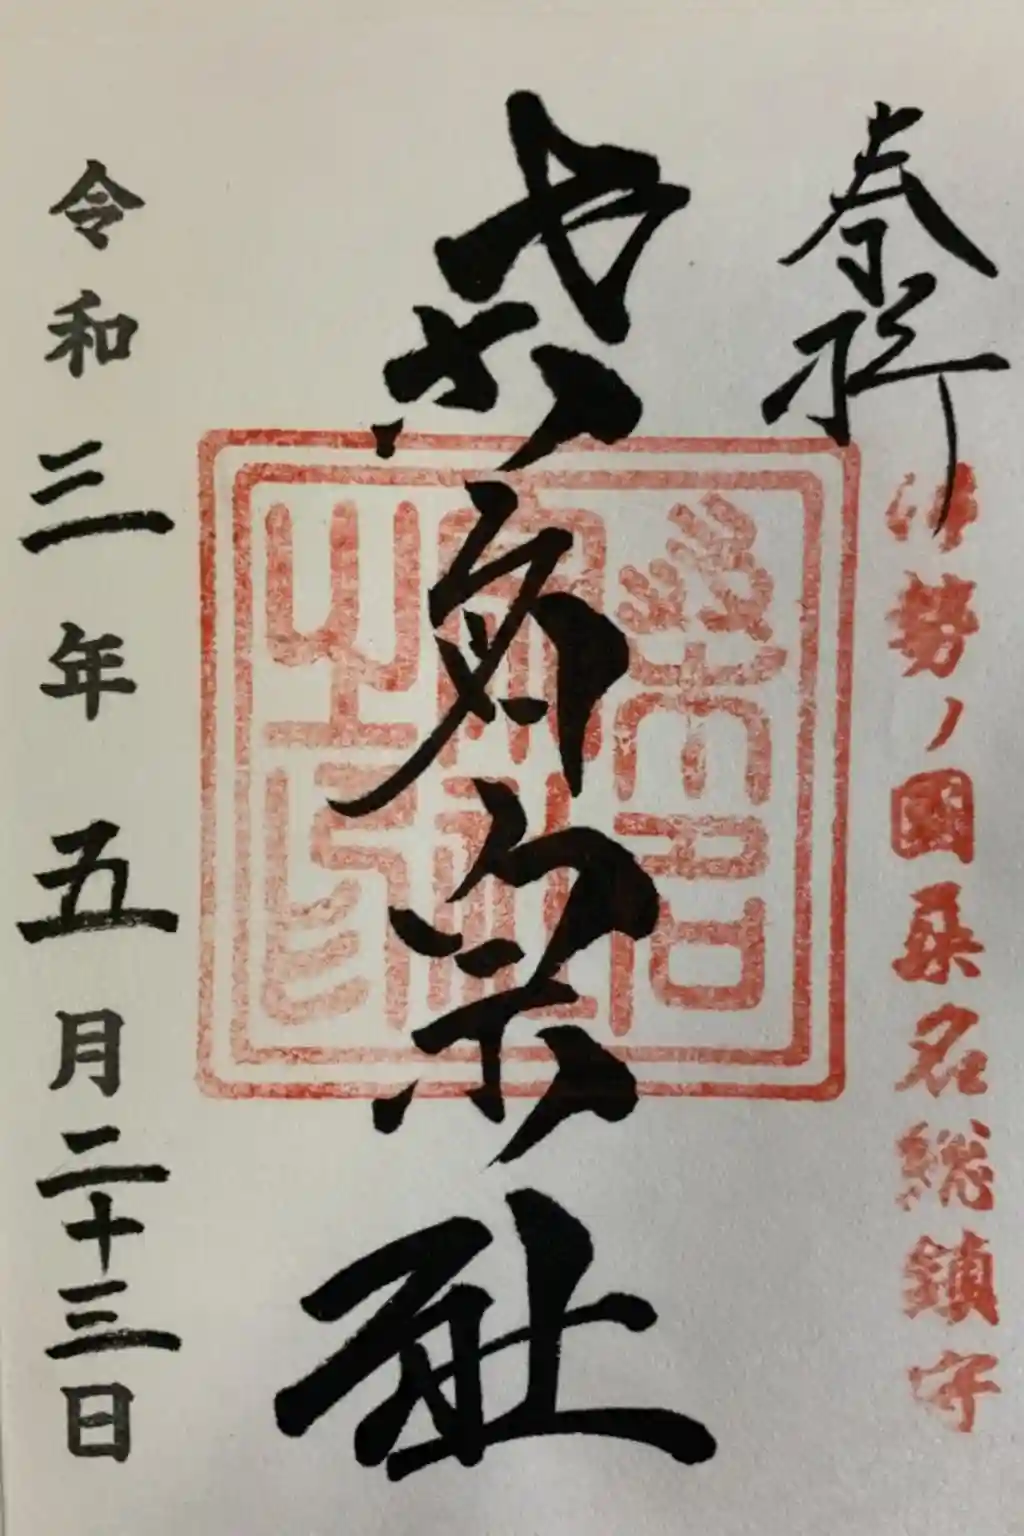 奉拝
伊勢ノ國桑名総鎮守
桑名宗社
桑名
宗社
之印
令和三年五月二十三日